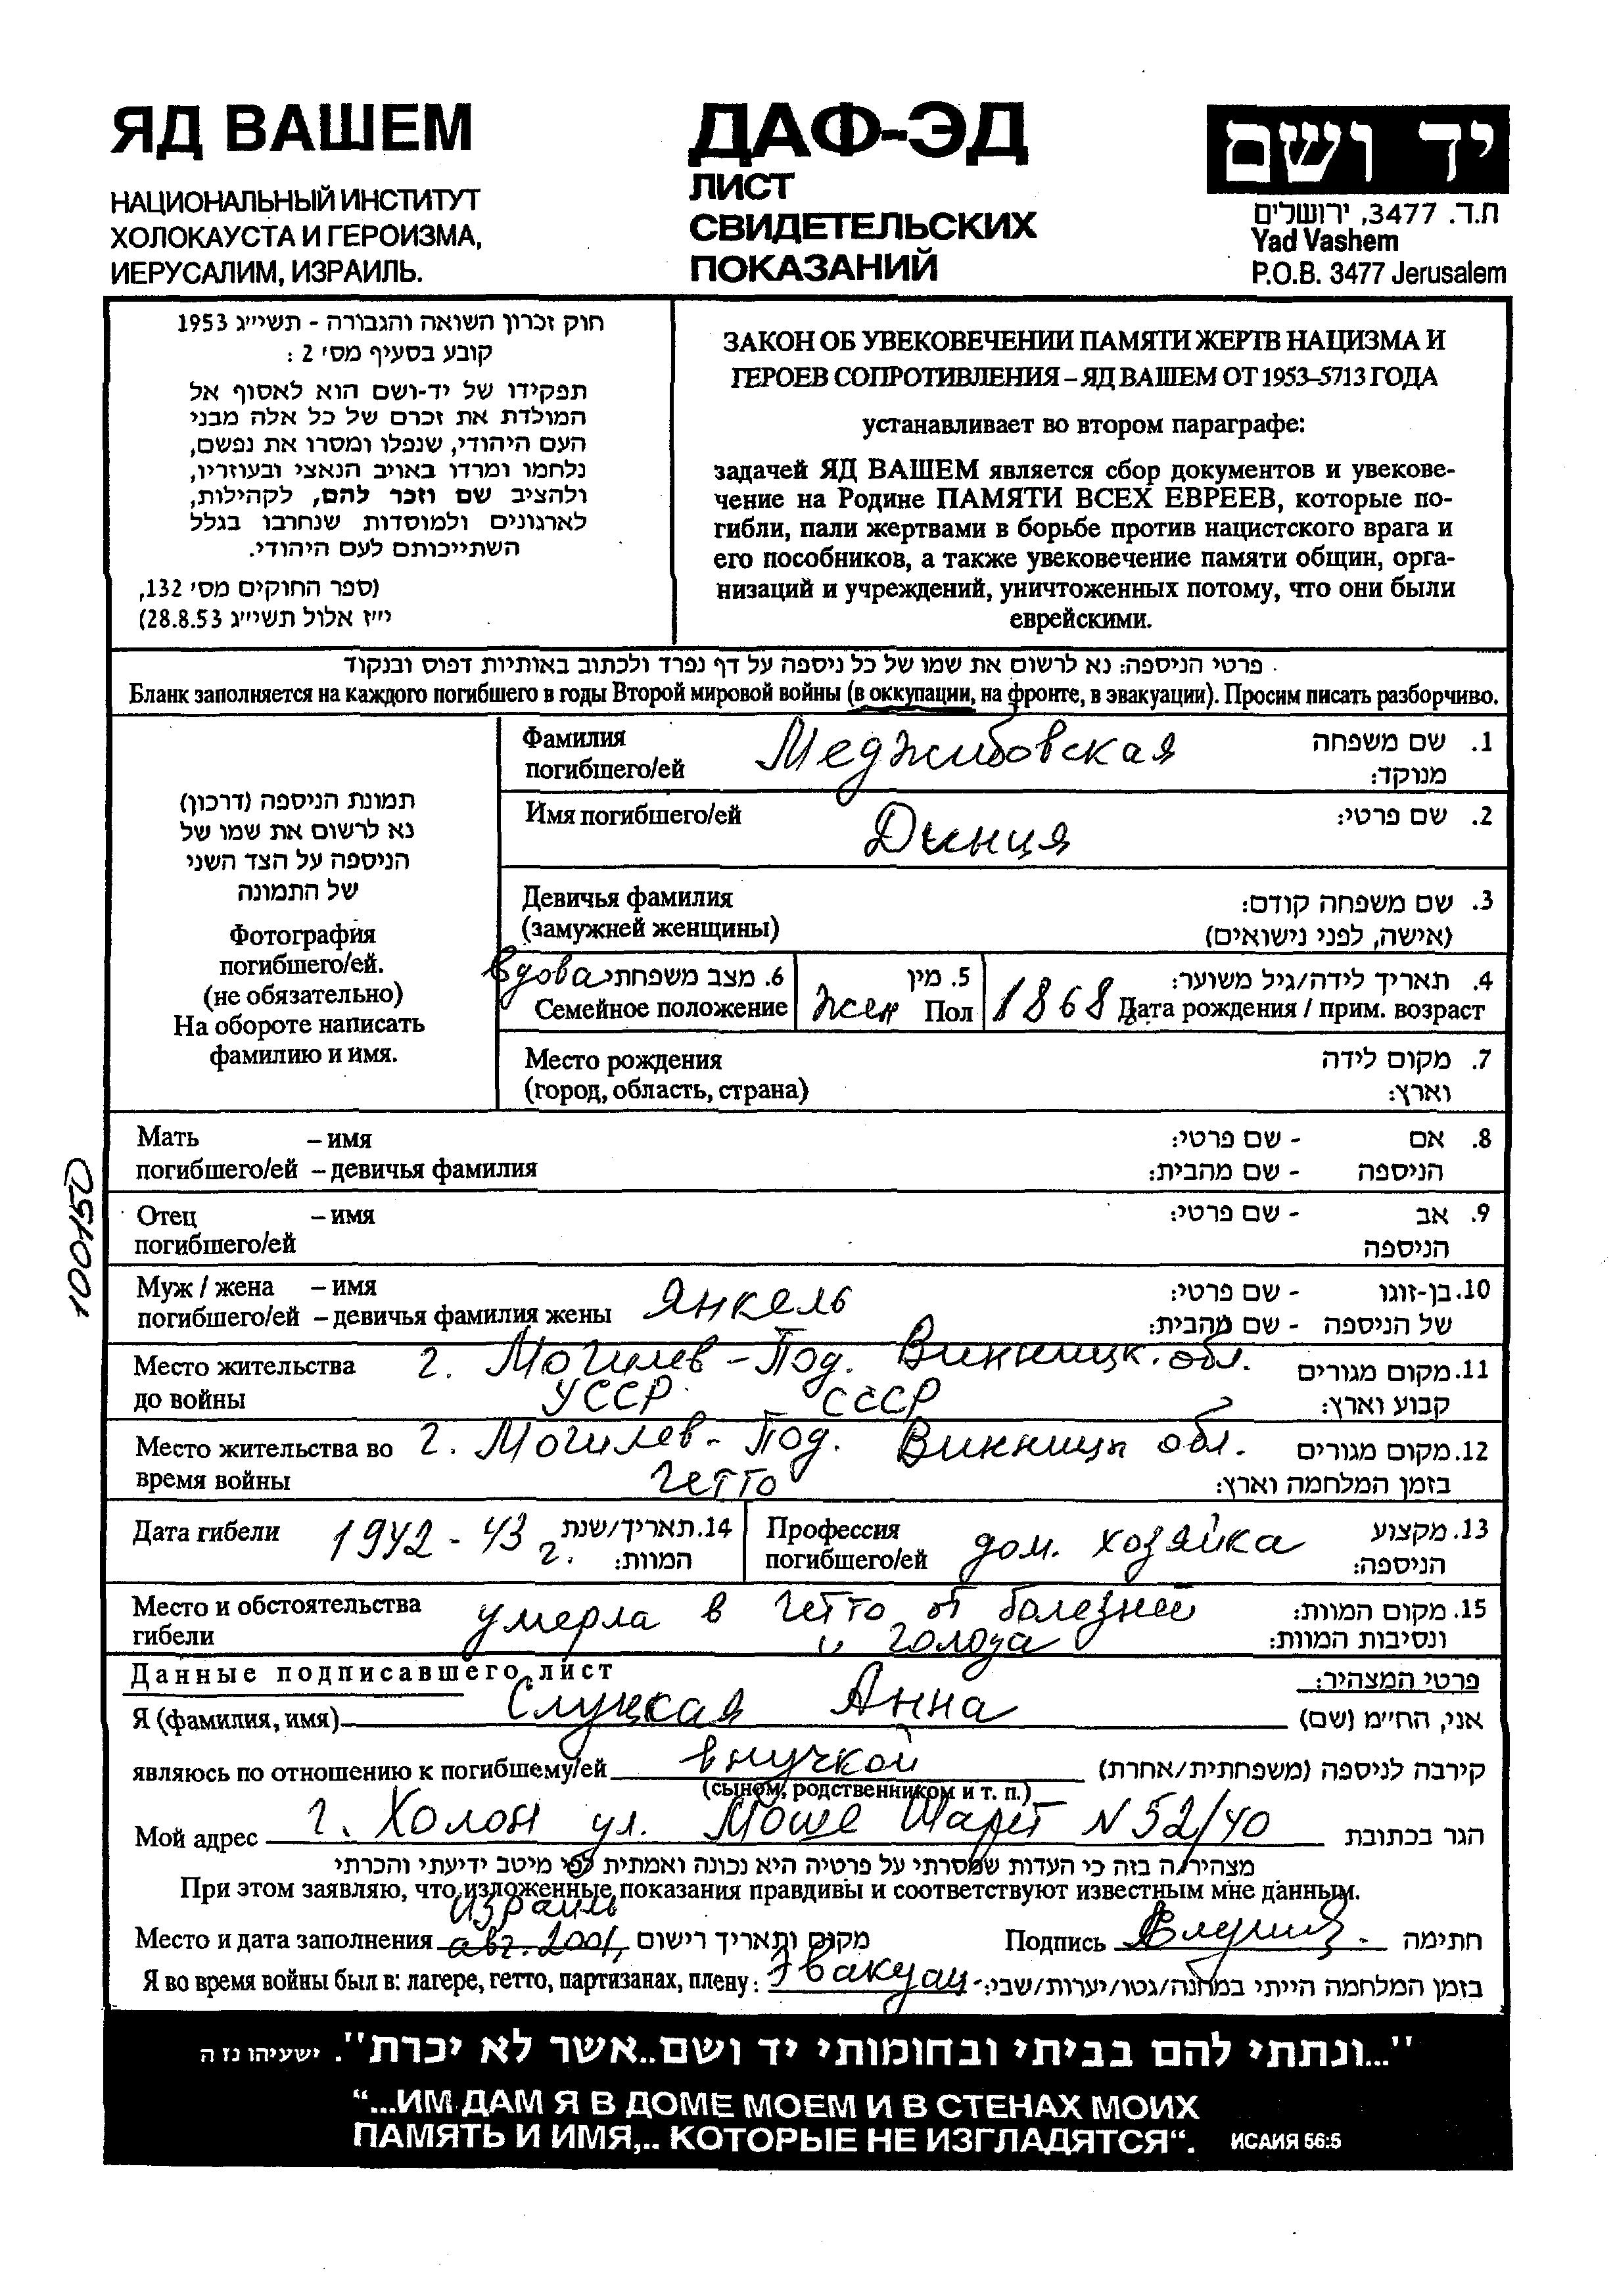 ЯД ВАШЕМ
НАЦИОНАЛЬНЫЙ ИНСТИТУТ
ХОЛОКАУСТА И ГЕРОИЗМА,
ИЕРУСАЛИМ, ИЗРАИЛЬ.
ДАФ-ЭД
ЛИСТ
СВИДЕТЕЛЬСКИХ
ПОКАЗАНИЙ
יד ושם
ת.ד. 3477, ירושלים
Yad Vashem
P.O.B. 3477 Jerusalem
חוק זכרון השואה והגבורה - תשי״ג 1953
קובע בסעיף מס׳ 2 :
תפקידו של יד-ושם הוא לאסוף אל
המולדת את זכרם של כל אלה מבני
העם היהודי, שנפלו ומסרו את נפשם,
נלחמו ומרדו באויב הנאצי ובעוזריו,
ולהציב שם וזכר להם, לקהילות,
לארגונים ולמוסדות שנחרבו בגלל
השתייכותם לעם היהודי.
(ספר החוקים מס׳ 132,
י״ז אלול תשי״ג 28.8.53)
ЗАКОН ОБ УВЕКОВЕЧЕНИИ ПАМЯТИ ЖЕРТВ НАЦИЗМА И
ГЕРОЕВ СОПРОТИВЛЕНИЯ – ЯД ВАШЕМ ОТ 1953–5713 ГОДА
устанавливает во втором параграфе:
задачей ЯД ВАШЕМ является сбор документов и увекове-
чение на Родине ПАМЯТИ ВСЕХ ЕВРЕЕВ, которые по-
гибли, пали жертвами в борьбе против нацистского врага и
его пособников, а также увековечение памяти общин, орга-
низаций и учреждений, уничтоженных потому, что они были
еврейскими.
פרטי הניספה: נא לרשום את שמו של כל ניספה על דף נפרד ולכתוב באותיות דפוס ובנקוד
Бланк заполняется на каждого погибшего в годы Второй мировой войны (в оккупации, на фронте, в эвакуации). Просим писать разборчиво.
תמונת הניספה (דרכון)
נא לרשום את שמו של
הניספה על הצד השני
של התמונה
Фотография
погибшего/ей.
(не обязательно)
На обороте написать
фамилию и имя.
Фамилия Меджибовская 1. שם משפחה
погибшего/ей מנוקד:
Имя погибшего/ей Дынця 2. שם פרטי:
Девичья фамилия 3. שם משפחה קודם:
(замужней женщины) (אישה, לפני נישואים)
вдова 6. מצב משפחתי 5. מין 4. תאריך לידה/גיל משוער:
Семейное положение жен Пол 1868 Дата рождения / прим. возраст
Место рождения 7. מקום לידה
(город, область, страна) וארץ:
Мать – имя 8. אם - שם פרטי:
погибшего/ей – девичья фамилия הניספה - שם מהבית:
Отец – имя 9. אב - שם פרטי:
погибшего/ей הניספה
Муж / жена – имя Янкель 10. בן-זוגו - שם פרטי:
погибшего/ей – девичья фамилия жены של הניספה - שם מהבית:
Место жительства г. Могилев-Под. Винницк. обл. 11. מקום מגורים
до войны УССР СССР קבוע וארץ:
Место жительства во г. Могилев-Под. Винницк обл. 12. מקום מגורים
время войны гетто בזמן המלחמה וארץ:
Дата гибели 1942-43 г. 14. תאריך/שנת
המוות:
Профессия дом. хозяйка 13. מקצוע
погибшего/ей הניספה:
Место и обстоятельства умерла в гетто от болезней 15. מקום המוות:
гибели и голода ונסיבות המוות:
Данные подписавшего лист פרטי המצהיר:
Я (фамилия, имя) Слуцкая Анна אני, הח״מ (שם)
являюсь по отношению к погибшему/ей внучкой קירבה לניספה (משפחתית/אחרת)
(сыном, родственником и т. п.)
Мой адрес г. Холон ул. Моше Шарет N 52/40 הגר בכתובת
מצהיר/ה בזה כי העדות שמסרתי על פרטיה היא נכונה ואמתית לפי מיטב ידיעתי והכרתי
При этом заявляю, что изложенные показания правдивы и соответствуют известным мне данным.
Израиль
Место и дата заполнения авг. 2001, מקום ותאריך רישום Подпись חתימה
Я во время войны был в: лагере, гетто, партизанах, плену: Эвакуац בזמן המלחמה הייתי במחנה/גטו/יערות/שבי:
״...ונתתי להם בביתי ובחומותי יד ושם..אשר לא יכרת״. ישעיהו נז ה
“...ИМ ДАМ Я В ДОМЕ МОЕМ И В СТЕНАХ МОИХ
ПАМЯТЬ И ИМЯ,.. КОТОРЫЕ НЕ ИЗГЛАДЯТСЯ“. ИСАИЯ 56:5
100150